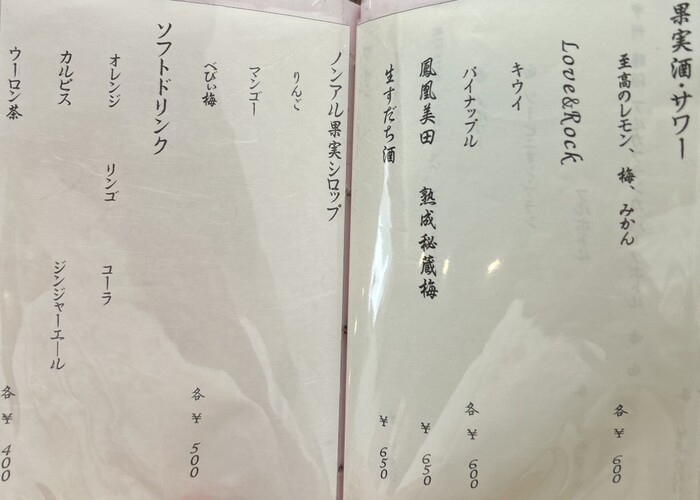 果実酒・サワー
至高のレモン、梅、みかん 各 ¥ 600
Love&Rock
キウイ
パイナップル 各 ¥ 600
鳳凰美田 熟成秘蔵梅 ¥ 650
生すだち酒 ¥ 650
ノンアル果実シロップ
りんご
マンゴー
べびぃ梅 各 ¥ 500
ソフトドリンク
オレンジ リンゴ コーラ
カルピス ジンジャーエール
ウーロン茶 各 ¥ 400